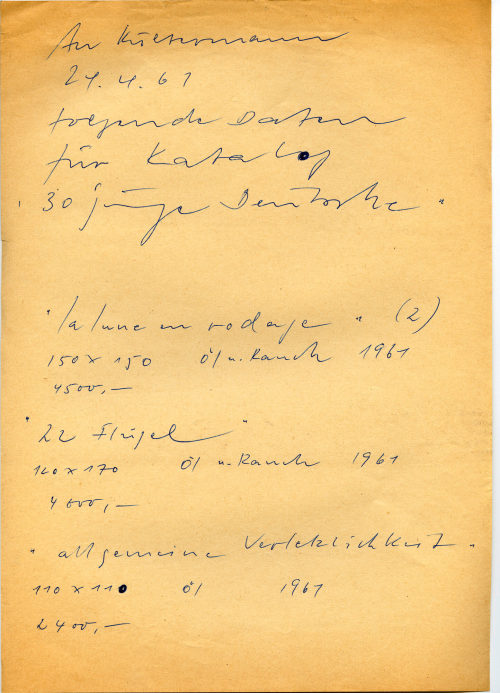 An Kultermann
24.4.61
folgende Daten
für Katalog
30 junge Deutsche"
"la lune en rodage" (2)
150 x 150 Öl u. Rauch 1961
4500,—
"22 Flügel"
120 x 170 Öl u. Rauch 1961
4000,—
"allgemeine Verletzlichkeit"
110 x 110 Öl 1961
2400,—